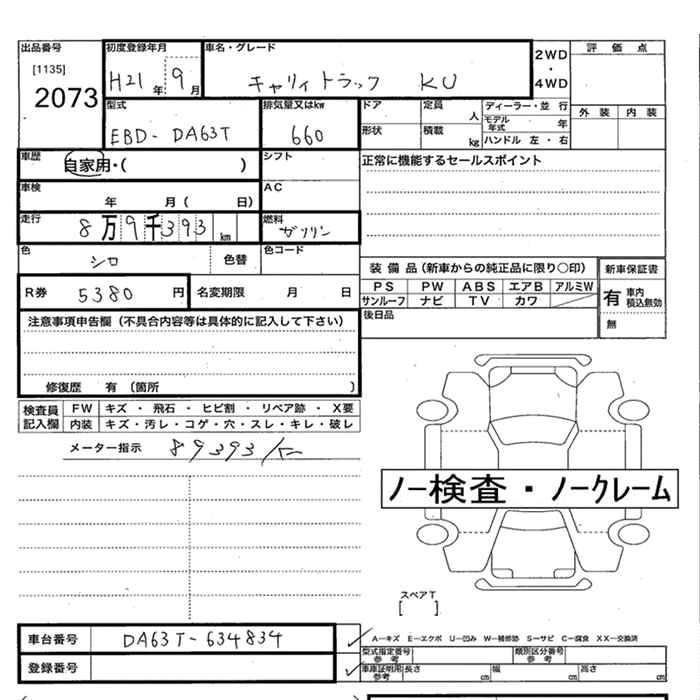 出品番号 初度登録年月 車名・グレード 2WD・4WD 評価点
[1135]
2073
H21年 9月 キャリィトラック KU
外装 内装
型式 排気量又はkw ドア 定員 人 ディーラー・並行
EBD-DA63T 660
形状 積載 kg モデル年式 年
ハンドル 左・右
車歴 自家用・( ) シフト 正常に機能するセールスポイント
車検 年 月( 日) AC
走行 8万9千393km 燃料 ガソリン
色 シロ 色替 色コード
装備品(新車からの純正品に限り○印) 新車保証書
R券 5380円 名変期限 月 日
PS PW ABS エアB アルミW
サンルーフ ナビ TV カワ
有 車内積込無効
無
後日品
注意事項申告欄(不具合内容等は具体的に記入して下さい)
修復歴 有(箇所 )
検査員記入欄 FW キズ・飛石・ヒビ割・リペア跡・X要
内装 キズ・汚レ・コゲ・穴・スレ・キレ・破レ
メーター指示 89393K
ノー検査・ノークレーム
スペアT
[ ]
車台番号 DA63T-634834
A−キズ E−エクボ U−凹み W−補修跡 S−サビ C−腐食 XX−交換済
型式指定番号 参考 類別区分番号 参考
登録番号
車庫証明用参考 長さ cm 幅 cm 高さ cm